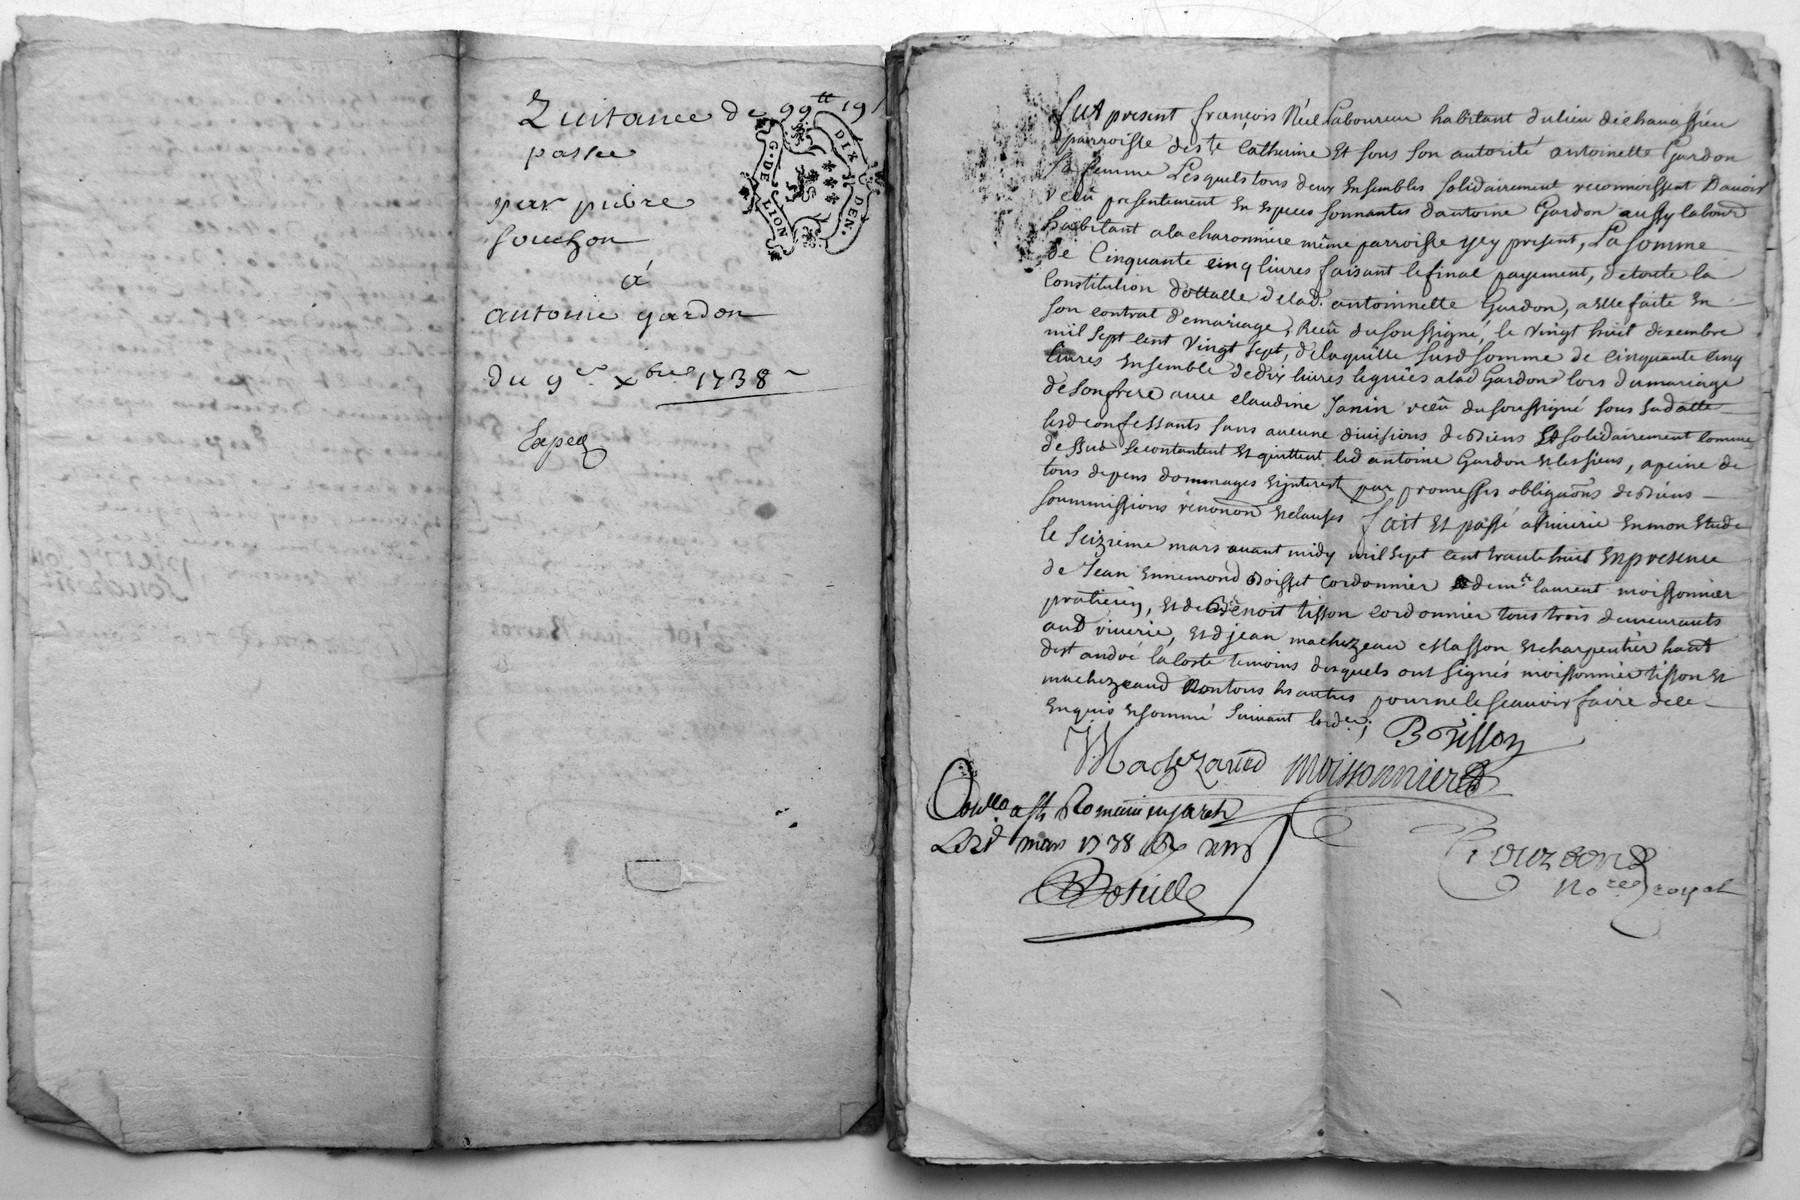 Quitance de 99tt 19s
passée
par pierre
souchon
a
antoine gardon
du 9er xbre 1738
Expeq
G. DE LION
DIX DEN.
fut present françois Réel Laboureur habitant du lieu de chanassieu
parroisse de ste Catherine Et sous son autorité antoinette Gardon
sa femme Lesquels tous deux Ensembles solidairement reconnoissent Davoir
reçû presentement En especes sonnantes d'antoine Gardon aussy labourd
habitant a la charonniere même parroisse yey present, La somme
de Cinquante cinq livres faisant le final payement, de toute la
Constitution dottalle de lad. antoinnette Gardon, a elle faite En
son contrat de mariage, Reçû du soussigné, le vingt huit dexembre
mil sept cent vingt sept, de laquelle susd somme de cinquante cinq
livres Ensemble de dix livres leguées a lad Gardon lors du mariage
de son frere avec claudine Janin reçû du soussigné sous sa datte
lesd confessants sans aucune divisions de biens Et solidairement comme
dessus se contentent Et quittent led antoine Gardon et les siens, a peine de
tous depens dommages Et interest par promesses obligaôns de biens
soummissions rénonôn et clauses fait et passé a riverie En mon Etude
le seizieme mars avant midy mil sept cent trante huit En presence
de Jean Ennemond Boisset cordonnier Et de me laurent moissonnier
praticien, et de Benoit tisson cordonnier tous trois demeurants
aud riverie, et de jean machezeau Masson et charpentier haut
de st andré la coste temoins desquels ont signés moissonnier tisson et
machezeaud Non tous les autres pour ne le scavoir faire de ce
Enquis et sommé suivant lorde;
B tisson
Machezaud moissonnier
Conllé a st Romain en jarest
Le 21 mars 1738
nore royal